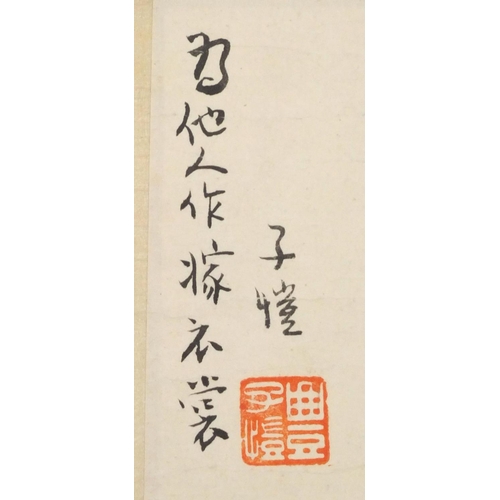 为他人作嫁衣裳
子愷
豐子愷